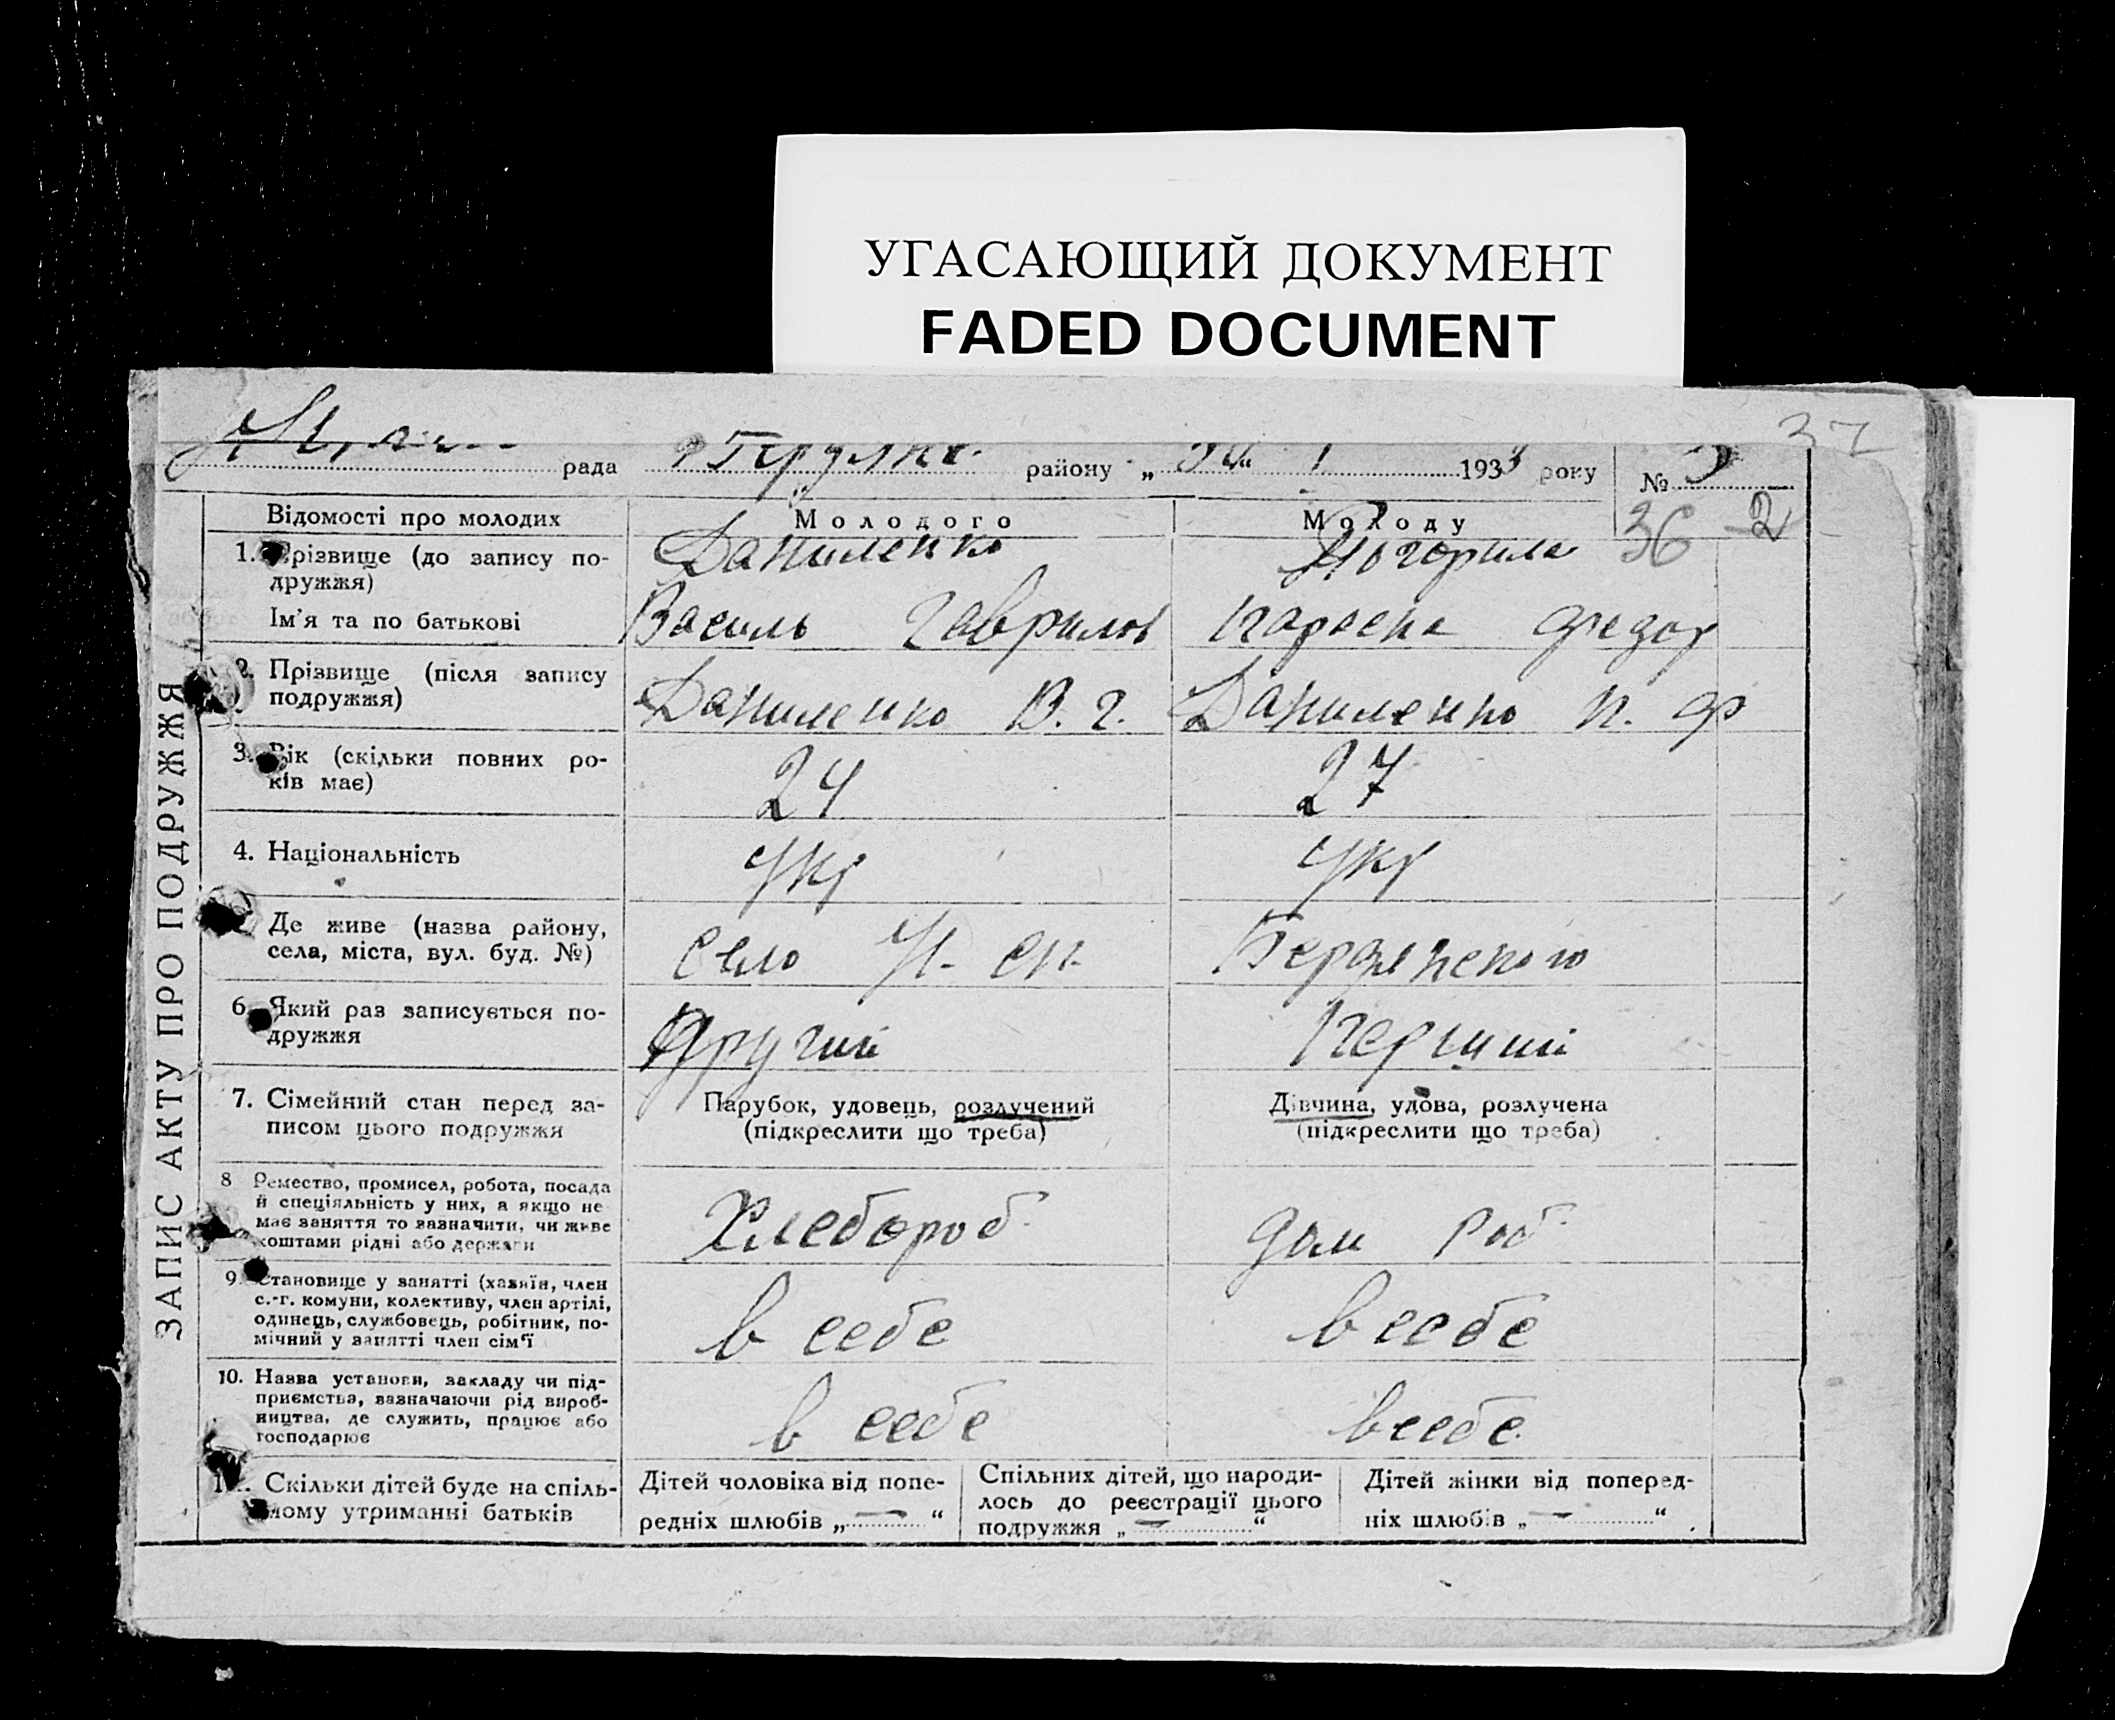 УГАСАЮЩИЙ ДОКУМЕНТ
FADED DOCUMENT
37
рада району „ “ 1 1933 року № 3
ЗАПИС АКТУ ПРО ПОДРУЖЖЯ
Відомості про молодих Молодого Молоду 36 2
1. Прізвище (до запису по- Даниленко Погоріла
дружжя)
Ім'я та по батькові Василь Гаврилов Параска Федор
2. Прізвище (після запису
подружжя) Даниленко В. Г. Даниленко П. Ф
3. Вік (скільки повних ро-
ків має) 24 27
4. Національність Укр Укр
Де живе (назва району,
села, міста, вул. буд. №) село Н- сп. Бердянского
6. Який раз записується по-
дружжя Другий Перший
7. Сімейний стан перед за- Парубок, удовець, розлучений Дівчина, удова, розлучена
писом цього подружжя (підкреслити що треба) (підкреслити що треба)
8 Ремество, промисел, робота, посада
й спеціяльність у них, а якщо не
має заняття то зазначити, чи живе Хлебороб дом роб
коштами рідні або держави
9. Становище у занятті (хазяїн, член
с.-г. комуни, колективу, член артілі,
одинець, службовець, робітник, по- в себе в себе
мічний у занятті член сім'ї
10. Назва установи, закладу чи під-
приємства, зазначаючи рід вироб-
ництва, де служить, працює або в себе в себе
господарює
11. Скільки дітей буде на спіль-
ному утриманні батьків
Дітей чоловіка від попе-
редніх шлюбів „ — “
Спільних дітей, що народи-
лось до реєстрації цього
подружжя „ — “
Дітей жінки від поперед-
ніх шлюбів „ — “